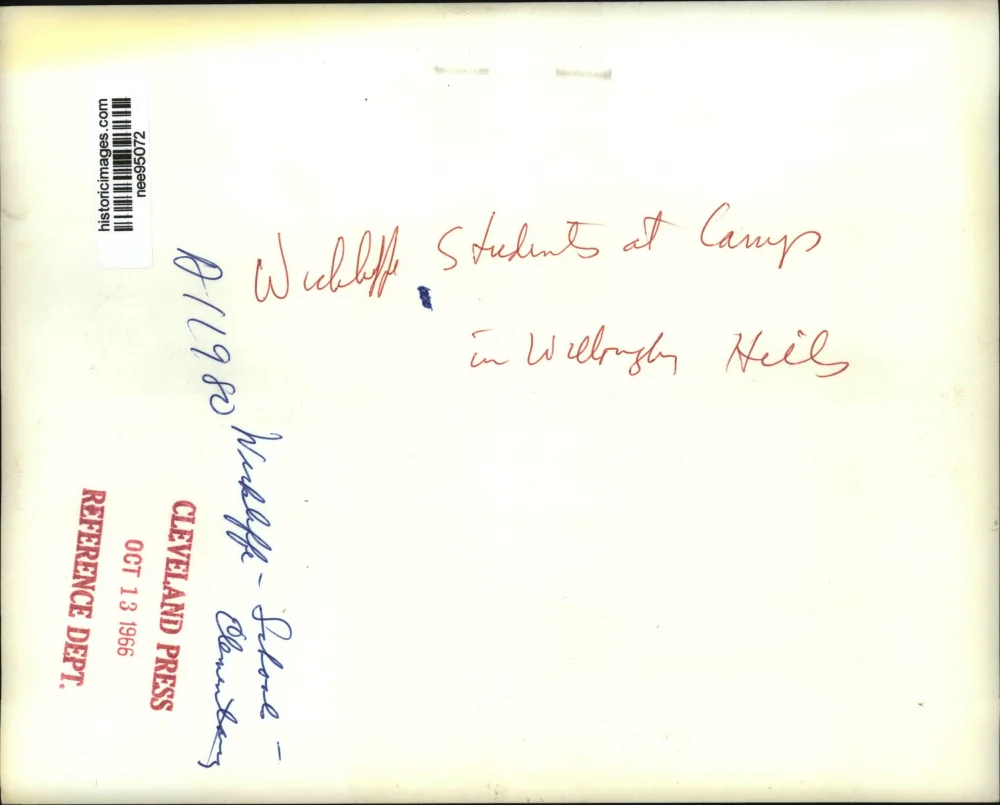 historicimages.com
nee95072
Wickliffe Students at Camp
in Willoughby Hills
A11980 Wickliffe - School -
Elementary
CLEVELAND PRESS
OCT 13 1966
REFERENCE DEPT.